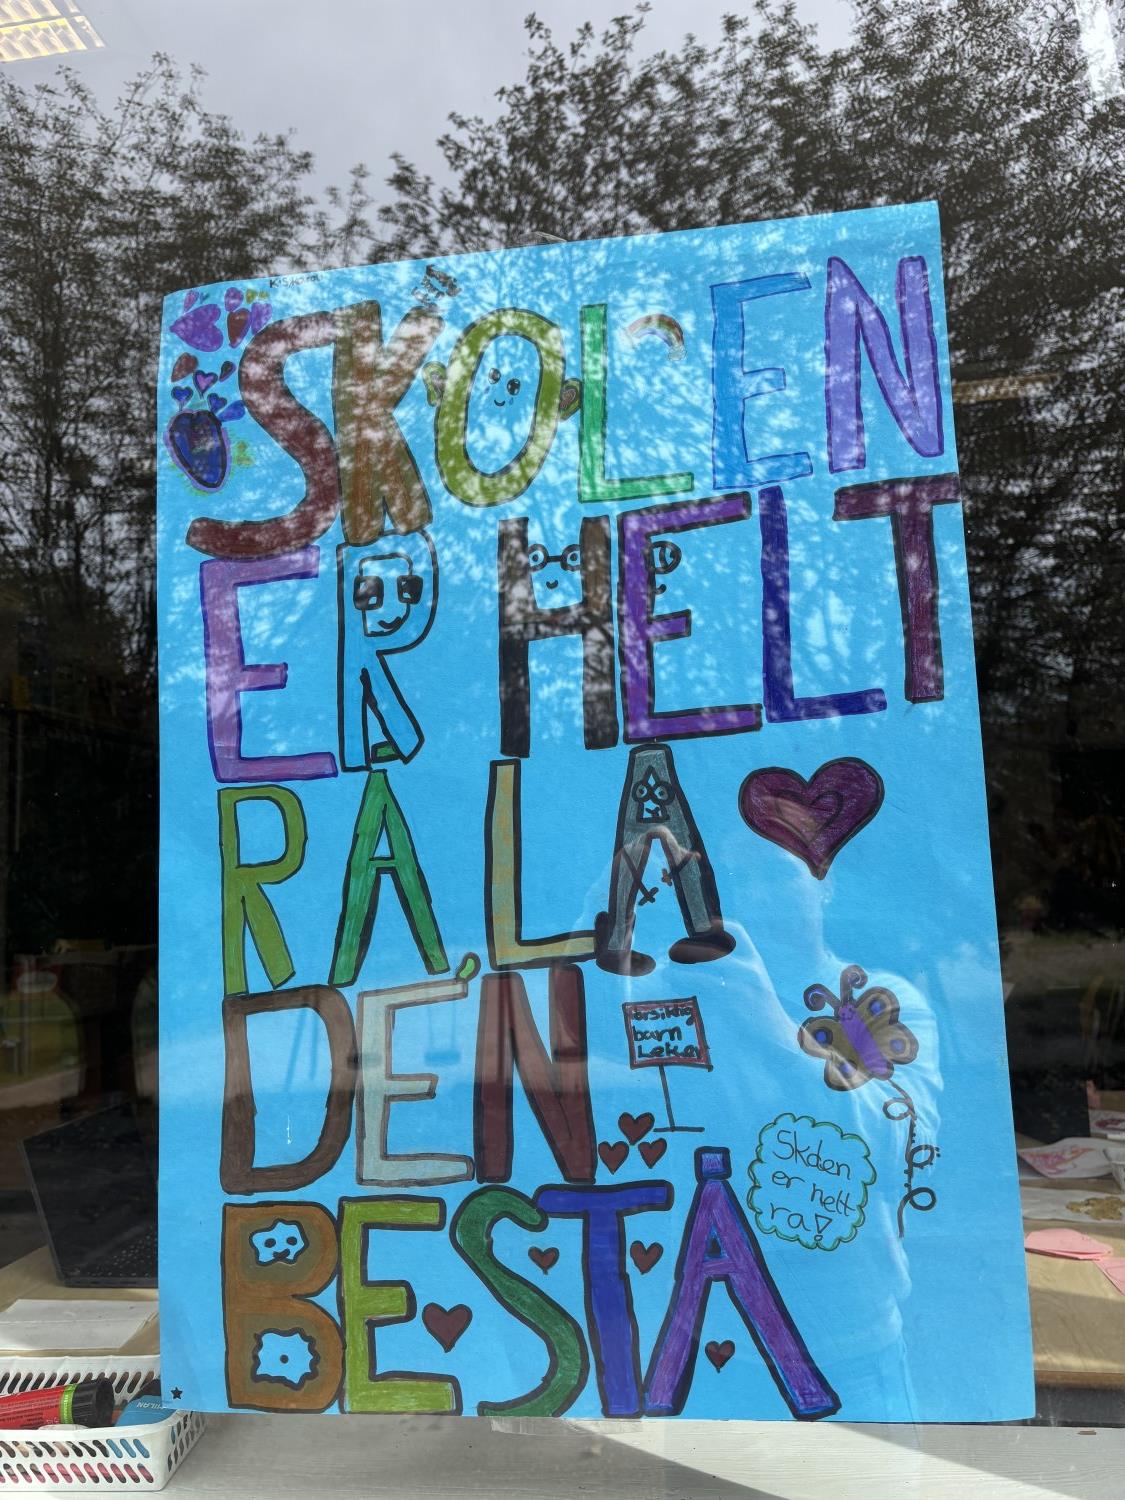 SKOLEN
ER HELT
RÅ, LA
DEN
BESTÅ
forsiktig
barn
Leker
Skolen
er helt
rå!
MILAN